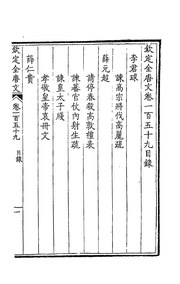 欽定全唐文卷一百五十九目錄
李君球
諫高宗將伐高麗疏
薛元超
請停春殺高敦禮表
諫蕃官仗內射生疏
諫皇太子牋
孝敬皇帝哀冊文
薛仁貴
欽定全唐文
卷一百五十九
目錄
一